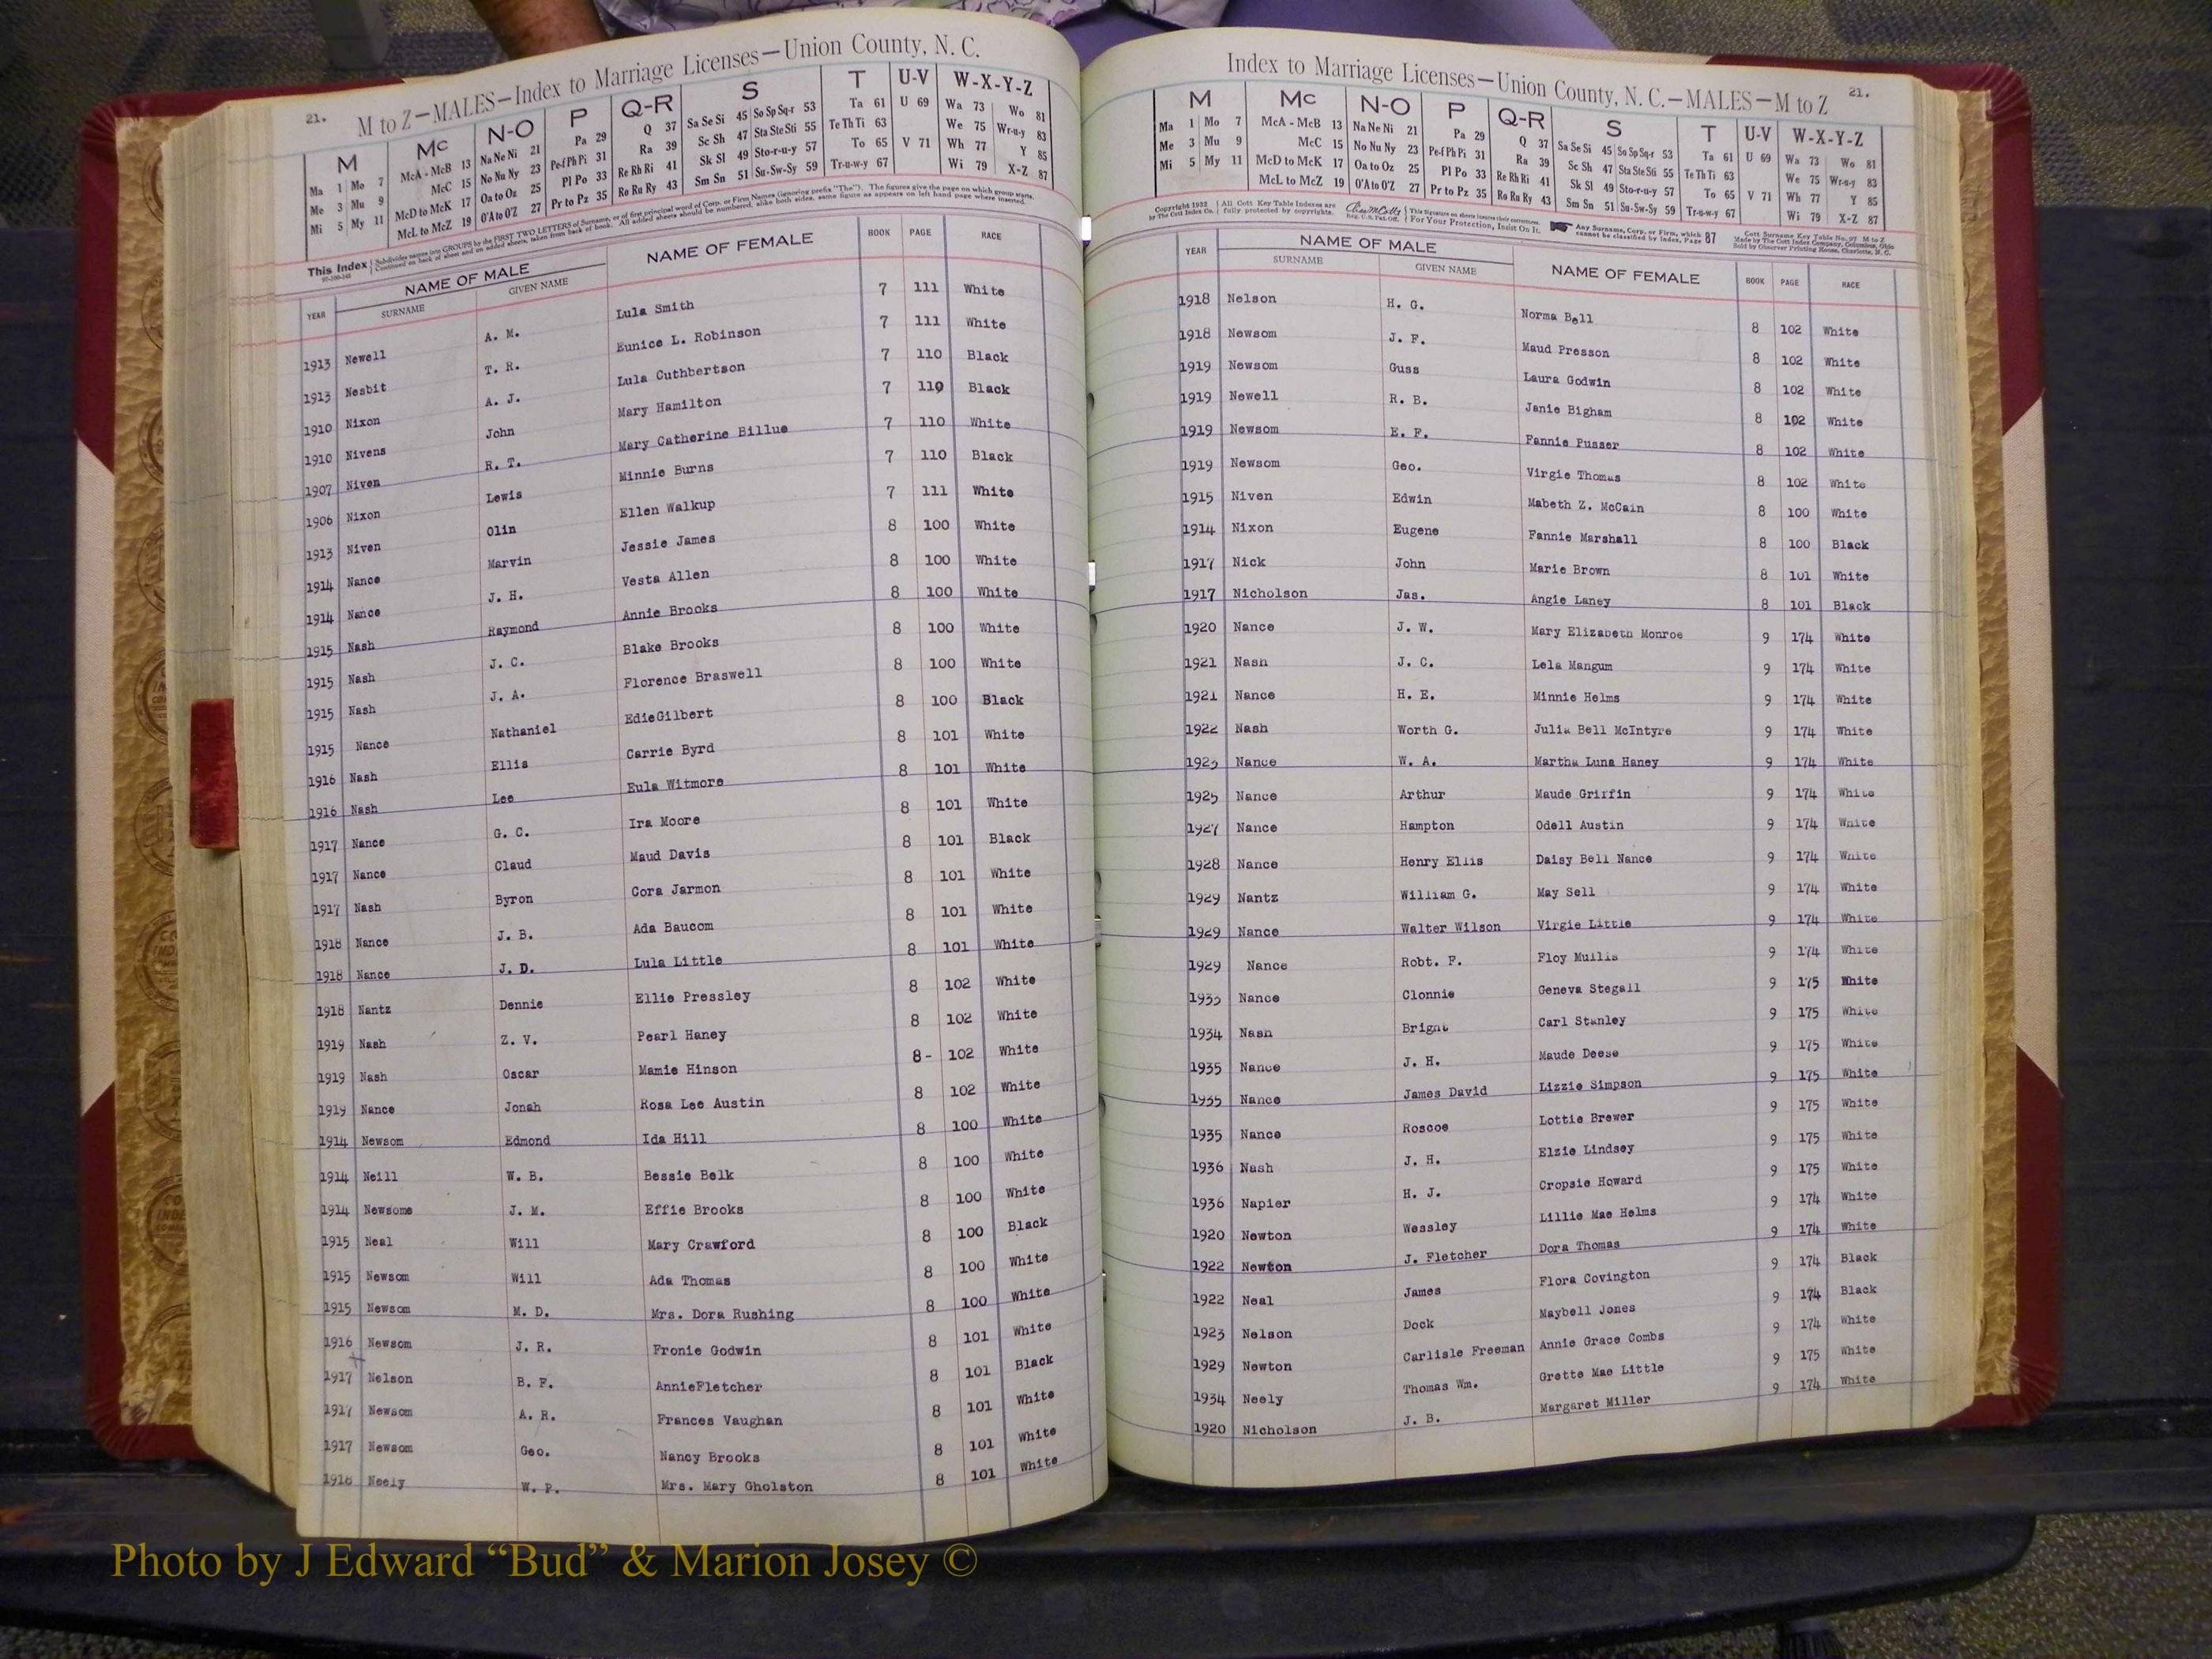 21.
M to Z—MALES—Index to Marriage Licenses—Union County, N. C.
M Mc N-O P Q-R S T U-V W-X-Y-Z
Ma 1 Mo 7 McA - McB 13 Na Ne Ni 21 Pa 29 Q 37 Sa Se Si 45 So Sp Sq-r 53 Ta 61 U 69 Wa 73 Wo 81
Me 3 Mu 9 McC 15 No Nu Ny 23 Pe-f Ph Pi 31 Ra 39 Sc Sh 47 Sta Ste Sti 55 Te Th Ti 63 We 75 Wr-u-y 83
Mi 5 My 11 McD to McK 17 Oa to Oz 25 Pl Po 33 Re Rh Ri 41 Sk Sl 49 Sto-r-u-y 57 To 65 V 71 Wh 77 Y 85
McL to McZ 19 O'A to O'Z 27 Pr to Pz 35 Ro Ru Ry 43 Sm Sn 51 Su-Sw-Sy 59 Tr-u-w-y 67 Wi 79 X-Z 87
This Index Subdivides names into GROUPS by the FIRST TWO LETTERS of Surname, or of first principal word of Corp. or Firm Names (ignoring prefix "The"). The figures give the page on which group starts.
Continued on back of sheet and on added sheets, taken from back of book. All added sheets should be numbered, alike both sides, same figure as appears on left hand page where inserted.
YEAR NAME OF MALE SURNAME GIVEN NAME NAME OF FEMALE BOOK PAGE RACE
1913 Newell A. M. Lula Smith 7 111 White
1913 Nesbit T. R. Eunice L. Robinson 7 111 White
1910 Nixon A. J. Lula Cuthbertson 7 110 Black
1910 Nivens John Mary Hamilton 7 110 Black
1907 Niven R. T. Mary Catherine Billue 7 110 White
1906 Nixon Lewis Minnie Burns 7 110 Black
1913 Niven Olin Ellen Walkup 7 111 White
1914 Nance Marvin Jessie James 8 100 White
1914 Nance J. H. Vesta Allen 8 100 White
1915 Nash Raymond Annie Brooks 8 100 White
1915 Nash J. C. Blake Brooks 8 100 White
1915 Nash J. A. Florence Braswell 8 100 White
1915 Nance Nathaniel EdieGilbert 8 100 Black
1916 Nash Ellis Carrie Byrd 8 101 White
1916 Nash Lee Eula Witmore 8 101 White
1917 Nance G. C. Ira Moore 8 101 White
1917 Nance Claud Maud Davis 8 101 Black
1917 Nash Byron Cora Jarmon 8 101 White
1918 Nance J. B. Ada Baucom 8 101 White
1918 Nance J. D. Lula Little 8 101 White
1918 Nantz Dennie Ellie Pressley 8 102 White
1919 Nash Z. V. Pearl Haney 8 102 White
1919 Nash Oscar Mamie Hinson 8- 102 White
1919 Nance Jonah Rosa Lee Austin 8 102 White
1914 Newsom Edmond Ida Hill 8 100 White
1914 Neill W. B. Bessie Belk 8 100 White
1914 Newsome J. M. Effie Brooks 8 100 White
1915 Neal Will Mary Crawford 8 100 Black
1915 Newsom Will Ada Thomas 8 100 White
1915 Newsom M. D. Mrs. Dora Rushing 8 100 White
1916 Newsom J. R. Fronie Godwin 8 101 White
1917 Nelson B. F. AnnieFletcher 8 101 Black
1917 Newsom A. R. Frances Vaughan 8 101 White
1917 Newsom Geo. Nancy Brooks 8 101 White
1918 Neely W. P. Mrs. Mary Gholston 8 101 White
Index to Marriage Licenses—Union County, N. C.—MALES—M to Z
21.
M Mc N-O P Q-R S T U-V W-X-Y-Z
Ma 1 Mo 7 McA - McB 13 Na Ne Ni 21 Pa 29 Q 37 Sa Se Si 45 So Sp Sq-r 53 Ta 61 U 69 Wa 73 Wo 81
Me 3 Mu 9 McC 15 No Nu Ny 23 Pe-f Ph Pi 31 Ra 39 Sc Sh 47 Sta Ste Sti 55 Te Th Ti 63 We 75 Wr-u-y 83
Mi 5 My 11 McD to McK 17 Oa to Oz 25 Pl Po 33 Re Rh Ri 41 Sk Sl 49 Sto-r-u-y 57 To 65 V 71 Wh 77 Y 85
McL to McZ 19 O'A to O'Z 27 Pr to Pz 35 Ro Ru Ry 43 Sm Sn 51 Su-Sw-Sy 59 Tr-u-w-y 67 Wi 79 X-Z 87
Copyright 1932 by The Cott Index Co. All Cott Key Table Indexes are fully protected by copyrights. Reg. U.S. Pat. Off. For Your Protection, Insist On It. Any Surname, Corp. or Firm, which cannot be classified by Index, Page 87
Made by The Cott Index Company, Columbus, Ohio
Sold by Observer Printing House, Charlotte, N. C.
YEAR NAME OF MALE SURNAME GIVEN NAME NAME OF FEMALE BOOK PAGE RACE
1918 Nelson H. G. Norma Bell 8 102 White
1918 Newsom J. F. Maud Presson 8 102 White
1919 Newsom Guss Laura Godwin 8 102 White
1919 Newell R. B. Janie Bigham 8 102 White
1919 Newsom E. F. Fannie Pusser 8 102 White
1919 Newsom Geo. Virgie Thomas 8 102 White
1915 Niven Edwin Mabeth Z. McCain 8 100 White
1914 Nixon Eugene Fannie Marshall 8 100 Black
1917 Nick John Marie Brown 8 101 White
1917 Nicholson Jas. Angie Laney 8 101 Black
1920 Nance J. W. Mary Elizabeth Monroe 9 174 White
1921 Nash J. C. Lela Mangum 9 174 White
1921 Nance H. E. Minnie Helms 9 174 White
1922 Nash Worth G. Julia Bell McIntyre 9 174 White
Nance W. A. Martha Luna Haney 9 174 White
1925 Nance Arthur Maude Griffin 9 174 White
1927 Nance Hampton Odell Austin 9 174 White
1928 Nance Henry Ellis Daisy Bell Nance 9 174 White
1929 Nantz William G. May Sell 9 174 White
1929 Nance Walter Wilson Virgie Little 9 174 White
1929 Nance Robt. F. Floy Mullis 9 174 White
1933 Nance Clonnie Geneva Stegall 9 175 White
1934 Nash Bright Carl Stanley 9 175 White
1935 Nance J. H. Maude Deese 9 175 White
1935 Nance James David Lizzie Simpson 9 175 White
1935 Nance Roscoe Lottie Brewer 9 175 White
1936 Nash J. H. Elzie Lindsey 9 175 White
1936 Napier H. J. Cropsie Howard 9 175 White
1920 Newton Wessley Lillie Mae Helms 9 174 White
1922 Newton J. Fletcher Dora Thomas 9 174 White
1922 Neal James Flora Covington 9 174 Black
1923 Nelson Dock Maybell Jones 9 174 Black
1929 Newton Carlisle Freeman Annie Grace Combs 9 174 White
1934 Neely Thomas Wm. Grette Mae Little 9 175 White
1920 Nicholson J. B. Margaret Miller 9 174 White
Photo by J Edward “Bud” & Marion Josey ©